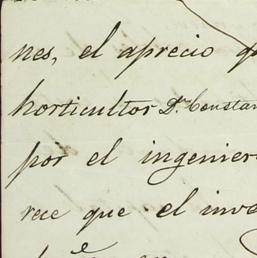 nes, el aprecio
horticultor Dn. Constan
por el ingenier
rece que el inve